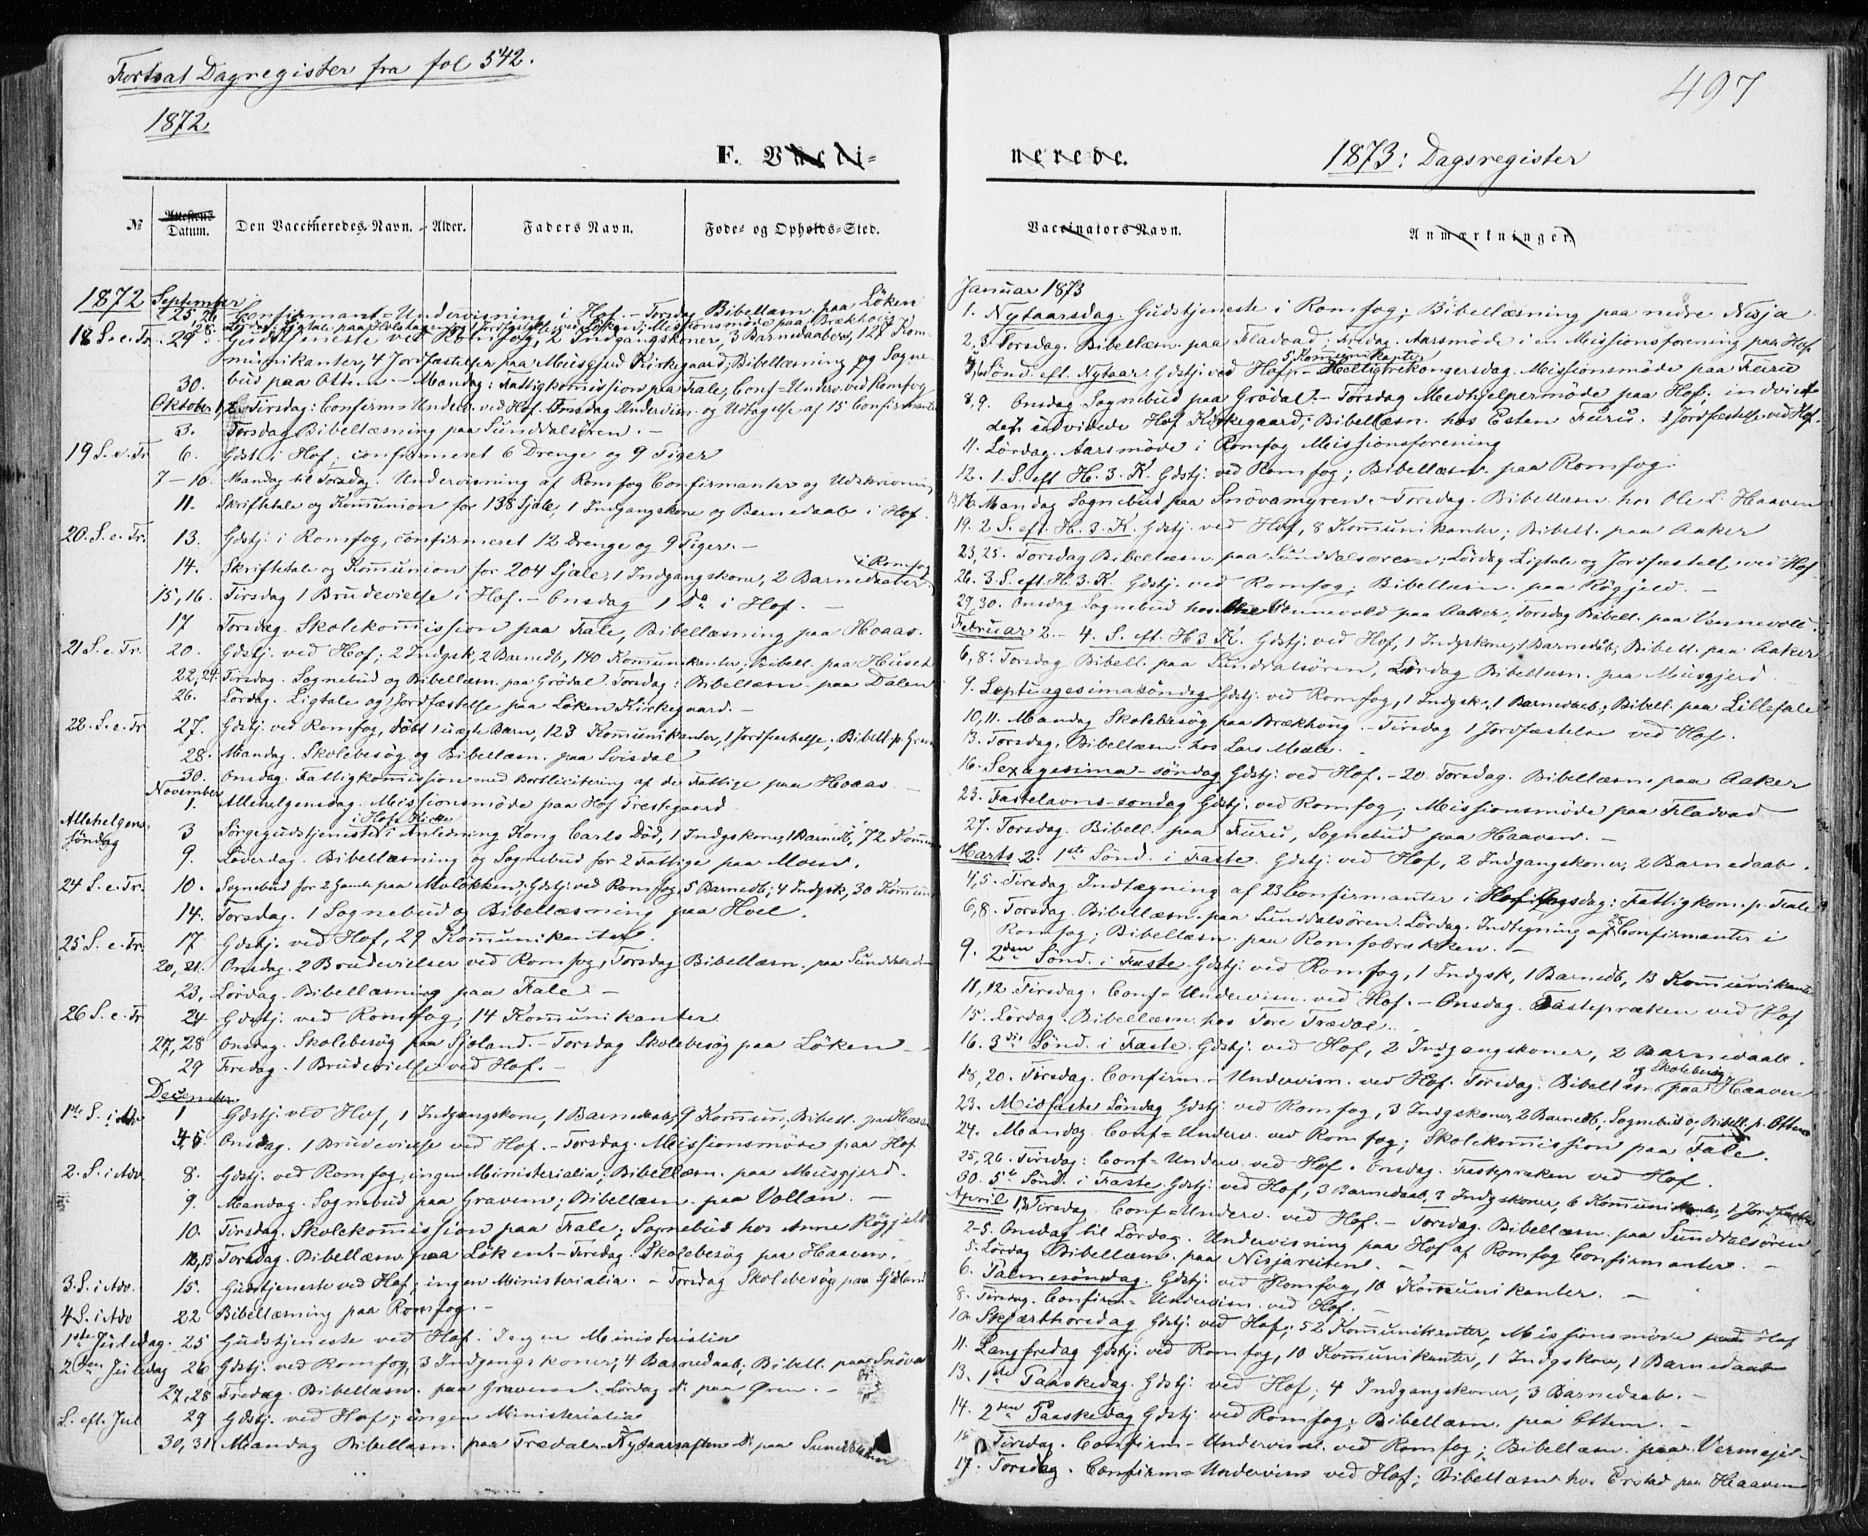 Fortsat Dagregister fra fol 542.
1872
497
F. Vacci=
nerede.
1873: Dagsregister
№
Attestens Datum.
Den Vaccineredes Navn.
Alder.
Faders Navn.
Føde- og Opholds-Sted.
Vaccinators Navn.
Anmærkninger.
1872 September
25, 26 Confirmant=Undervisning i Hof. - Torsdag Bibellæsn. paa Löken
18 S. e. Tr. 29 Gudstjeneste ved Romfog, 2 Indgangskoner, 3 Barnedaaber, 127 Kom-
munikanter, 4 Jordfæstelser paa Musgjerd Kirkegaard; Bibellæsning og Sogne-
30. bud paa Ottem. - Mandag: Fattigkomission paa Fale, Conf=Underv. ved Romfog
Oktober 1, 2 Tirsdag: Confirm=Underv. ved Hof. Onsdag Undervisn. og Udtagelse af 15 Confirmanter
3. Torsdag Bibellæsning paa Sunddalsören. -
19 S. e. Tr. 6. Gdst. i Hof, confirmeret 6 Drenge og 9 Piger
7-10. Mandag til Torsdag. Undervisning af Romfog Confirmanter og Udskrivning
11. Skriftetale og Komunion for 138 Sjæle, 1 Indgangskone og Barnedaab i Hof.
20. S. e. Tr. 13. Gdstj. i Romfog, confirmeret 12 Drenge og 9 Piger. -
14. Skriftetale og Komunion for 204 Sjæle, 1 Indgangskone, 2 Barnedaaber i Romfog
15, 16. Tirsdag 1 Brudevielse i Hof. - Onsdag 1 Do i Hof. -
17 Torsdag. Skolekomission paa Fale, Bibellæsning paa Hoaas.
21 S. e. Tr. 20. Gdstj. ved Hof; 2 Indgsk, 2 Barnedb, 140 Komunikanter, Bibell. paa Huset
22, 24 Tirsdag. Sognebud og Bibellæsn. paa Grödal. Torsdag: Bibellæsn. paa Dalen
26. Lördag. Ligtale og 1 Jordfæstelse paa Löken Kirkegaard. -
22. S. e. Tr. 27. Gdstj. ved Romfog, döbt 1 uægte Barn, 123 Komunikanter, 1 Jordfæstelse, Bibell. p. Grav
28. Mandag. Skolebesög og Bibellæsn. paa Svisdal
30. Onsdag. Fattigkomission med Bortlicitering af de Fattige paa Hoaas -
November 1. Allehelgensdag. Missionsmöde paa Hof Præstegaard
Allehelgens söndag 3 Sörgegudstjeneste i Hofs Kirke i Anledning Kong Carls Död, 1 Indgskone, 1 Barnedb, 72 Komun
9. Löverdag. Bibellæsning og Sognebud for 2 Fattige paa Moen.
24 S. e. Tr. 10. Sognebud for 2 Gamle paa Moløkken; Gdstj. ved Romfog, 5 Barnedb; 4 Indgsk, 30 Komun
14. Torsdag. 1 Sognebud og Bibellæsning paa Hoel.
25 S. e. Tr. 17 Gdstj. ved Hof, 29 Komunikanter.
20, 21. Onsdag. 2 Brudevielser ved Romfog, Torsdag Bibellæsn. paa Sunddalsö
23, Lördag. Bibellæsning paa Fale -
26 S. e. Tr 24 Gdstj. ved Romfog; 14 Komunikanter
27, 28 Onsdag. Skolebesög paa Sjöland. - Torsdag Skolebesög paa Löken -
29 Fredag. 1 Brudevielse ved Hof. -
December
1ste S. i Adv 1 Gdstj. ved Hof, 1 Indgangskone, 1 Barnedaab, 9 Komun., Bibell. paa Haaven
4, 5. Onsdag. 1 Brudevielse ved Hof. - Torsdag. Missionsmöde paa Hof
2. S. i Adv. 8. Gdstj. ved Romfog, ingen Ministerialia, Bibellæsn. paa Musgjerd.
9. Mandag. Sognebud paa Gravem, Bibellæsn. paa Vollan. -
10. Tirsdag. Skolekomission paa Fale; Sognebud hos Anne Rögjeld
12, 13 Torsdag. Bibellæsn. paa Löken. - Fredag. Skolebesög paa Haaven.
3. S. i Adv. 15. Gudstjeneste ved Hof; ingen Ministerialia. - Torsdag Skolebesög paa Sjöland
4 S. i Adv 22 Bibellæsning paa Romfog. -
1ste Juledag. 25 Gudstjeneste ved Hof. Ingen Ministerialia
2den Juledag 26 Gdstj. ved Romfog, 3 Indgangskoner, 4 Barnedaab, Bibell. paa Snöva
27, 28 Fredag. Bibellæsn. paa Gravem. Lördag Do paa Øren. -
S. eft. Jul 29 Gdstj. ved Hof; ingen Ministerialia
30, 31 Mandag Bibellæsn. paa Trædal. Nytaarsaften Do paa Sunddalsören
Januar 1873
1. Nytaarsdag. Gudstjeneste i Romfog; Bibellæsning paa nedre Nisja.
2, 3. Torsdag. Bibellæsn. paa Fladvad; Fredag. Aarsmöde i en Missionsforening paa Hof
5, 6. Sönd. eft. Nytaar. Gdstj. ved Hof, 5 Komunikanter. - Helligtrekongersdag. Missionsmöde paa Furu
8, 9. Onsdag Sognebud paa Grödal. - Torsdag Medhjelpermöde paa Hof; indviet
det udvidede Hof Kirkegaard; Bibellæsn. hos Esten Furu. 1 Jordfæstelse ved Hof.
11. Lördag. Aarsmöde i Romfog Missionsforening
12. 1. S. eft H. 3. K. Gdstj. ved Romfog; Bibellæsn. paa Romfog
13, 16. Mandag Sognebud paa Snövamyren. - Torsdag. Bibellæsn. hos Ole L. Haaven
19. 2. S. eft H. 3. K. Gdstj. ved Hof, 8 Komunikanter, Bibell. paa Aaker
23, 25. Torsdag Bibellæsn. paa Sunddalsören; Lördag Ligtale og Jordfæstelse ved Hof
26. 3. S. eft H. 3. K. Gdstj. ved Romfog, Bibellæsn. paa Rögjeld. -
29, 30. Onsdag Sognebud hos Ole Vennevold paa Aaker, Torsdag Bibell. paa Vennevold.
Februar 2. - 4. S. eft. H 3 K. Gdstj. ved Hof, 1 Indgskone, 1 Barnedb; Bibell. paa Aaker
6, 8. Torsdag Bibell. paa Sunddalsören, Lördag Bibellæsn. paa Musgjerd
9. Septuagesimasöndag Gdstj. ved Romfog, 1 Indgsk., 1 Barnedaab; Bibell. paa Lillefale
10, 11. Mandag Skolebesög paa Brækhoug. - Tirsdag 1 Jordfæstelse ved Hof.
13. Torsdag. Bibellæsn. hos Lars Mæle. -
16. Sexagesima-söndag Gdstj. ved Hof. - 20. Torsdag. Bibellæsn. paa Aaker
23. Fastelavns-söndag Gdstj. ved Romfog; Missionsmöde paa Fladvad
27. Torsdag. Bibell. paa Furu, Sognebud paa Haaven. -
Marts 2. 1ste Sönd. i Faste. Gdstj. ved Hof, 2 Indgangskoner, 2 Barnedaab.
4, 5. Tirsdag Indtegning af 23 Confirmanter i Hof. Onsdag: Fattigkom. p. Fale
6, 8. Torsdag. Bibellæsn. paa Sunddalsören. Lördag. Indtegning af 28 Confirmanter i
Romfog; Bibellæsn. paa Romfobrækken. -
9. 2den Sönd. i Faste. Gdstj. ved Romfog, 1 Indgsk, 1 Barnedb, 13 Komunikanter
11, 12. Tirsdag. Conf=Undervisn. ved Hof. - Onsdag. Fastepræken ved Hof
15. Lördag. Bibellæsn. hos Tore Trædal. -
16. 3die Sönd. i Faste. Gdstj. ved Hof, 2 Indgangskoner, 2 Barnedaab.
18, 20. Tirsdag. Confirm.-Undervisn. ved Hof. Torsdag. Bibellæsn. og Skolebesög paa Haaven
23. Midfaste Söndag Gdstj. ved Romfog, 3 Indgskoner, 2 Barnedb; Sognebud og Bibell. p. Ottem
24. Mandag. Conf=Underv. ved Romfog; Skolekomission paa Fale.
25, 26. Tirsdag: Conf=Underv. ved Hof. Onsdag. Fastepræken ved Hof.
30. 5te Sönd. i Faste. Gdstj. ved Hof, 3 Barnedaab, 3 Indgskoner, 6 Komunikanter, 1 Jordfæstelse
April 1, 3. Tirsdag. Conf=Underv. ved Hof. - Torsdag. Bibellæsn. paa Sunddalsören
2-5. Onsdag til Lördag. Undervisning paa Hof af Romfog Confirmanter. -
5. Lördag Bibellæsn. paa Nisjareiten. -
6. Palmesöndag. Gdstj. ved Romfog, 10 Komunikanter. -
8. Tirsdag. Confirm.-Undervisn. ved Hof. -
10. Skjærthorsdag Gdstj. ved Hof, 52 Komunikanter, Missionsmöde paa Hof
11. Langfredag Gdstj. ved Romfog, 10 Komunikanter, 1 Indgskone, 1 Barnedaab
13. 1ste Paaskedag. Gdstj. ved Hof; 4 Indgangskoner, 3 Barnedaab. -
14. 2den Paaskedag Gdstj. ved Romfog; Bibellæsn. paa Ottem. -
15 Tirsdag. Confirm-Undervisn. ved Romfog; Bibellæsn. paa Vermøjel-
17. Torsdag. Confirm=Undervisn. ved Hof; Bibellæsn. hos Erstad paa Haaven